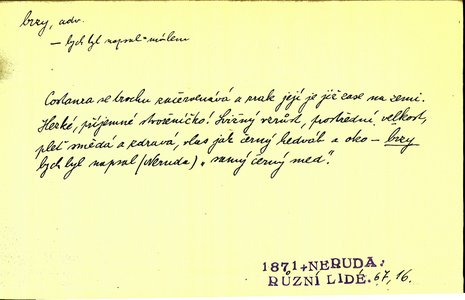 brzy, adv.
– bych byl napsal = málem
Costanza se trochu začervenává a zrak její je již zase na zemi.
Hezké, příjemné stvořeníčko! Svižný vzrůst, prostřední velkost,
pleť snědá a zdravá, vlas jak černý hedváb a oko – brzy
bych byl napsal (Neruda) „samý černý med".
1871 + NERUDA:
RŮZNÍ LIDÉ. 67, 16.